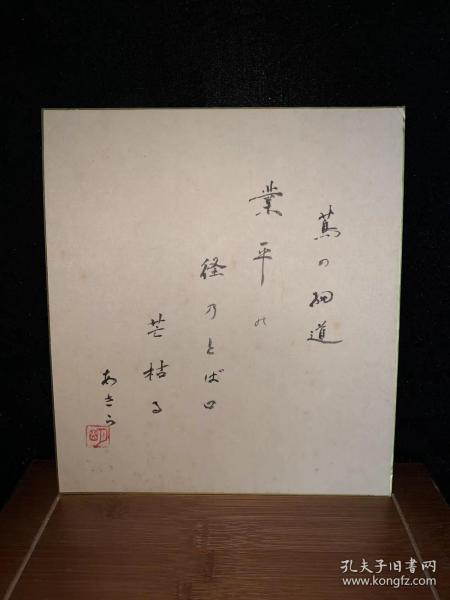 蔦の細道
業平の
径乃とば口
芒枯る
あきら
孔夫子旧书网
www.kongfz.com